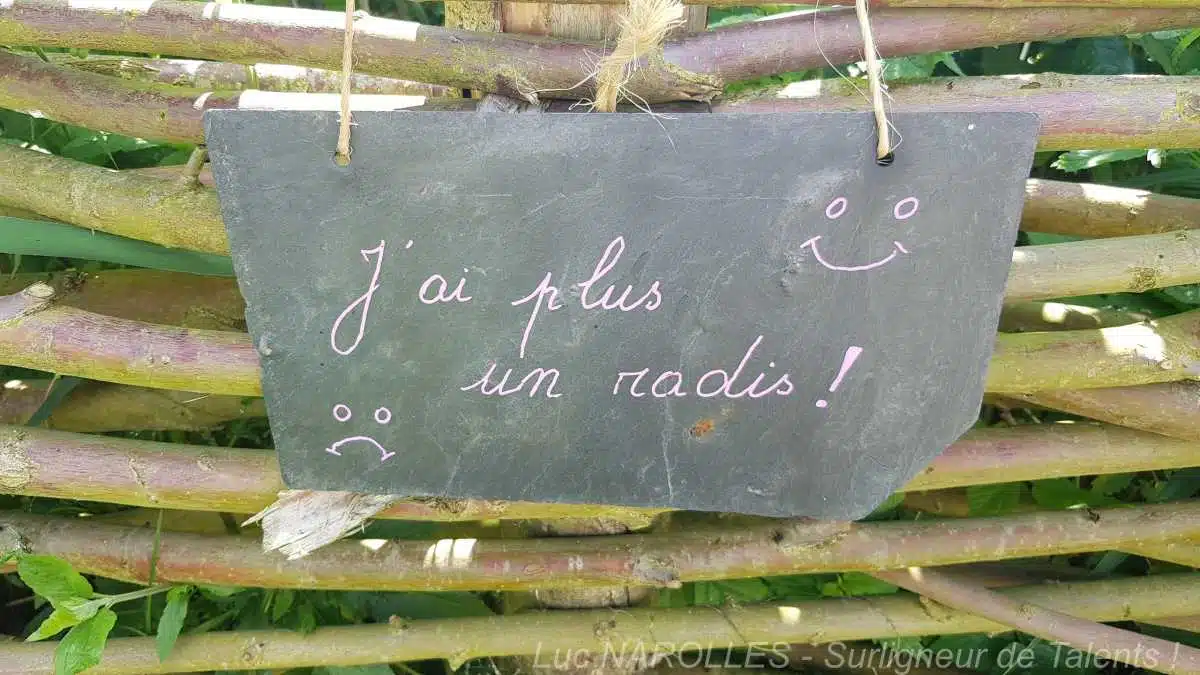 J'ai plus
un radis !
Luc NAROLLES - Surligneur de Talents !